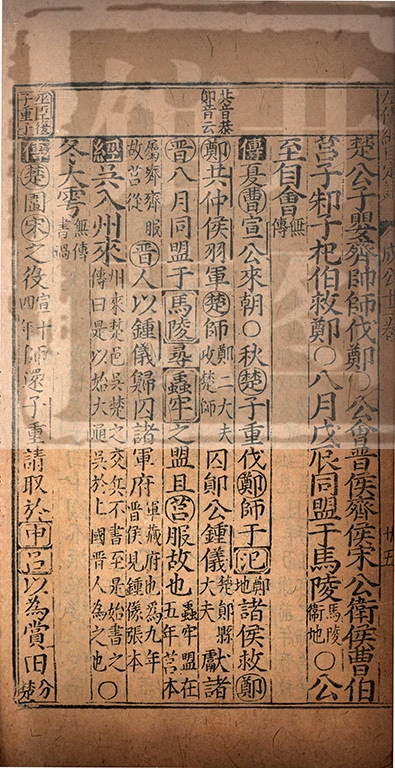 成公上卷 廿五
楚公子嬰齊帥師伐鄭〇公會晉侯齊侯宋公衛侯曹伯
莒子邾子杞伯救鄭〇八月戊辰同盟于馬陵馬陵衛地〇公
至自會無傳
傳夏曹宣公來朝〇秋楚子重伐鄭師于氾鄭地諸侯救鄭
共音恭鄖音云
鄭共仲侯羽軍楚師鄭二大夫攻楚師囚鄖公鍾儀楚鄖縣大夫獻諸
晉八月同盟于馬陵尋蟲牢之盟且莒服故也蟲牢盟在五年莒本
屬齊齊服故莒從晉人以鍾儀歸囚諸軍府軍藏府也為九年晉侯見鍾儀張本
經吳入州來州來楚邑吳楚之交兵不書至是始書之傳曰是以始大通吳於上國晉人為之也〇
冬大雩無傳書過
巫臣復子重子
傳楚圍宋之役宣十四年師還子重請取於申呂以為賞田分楚